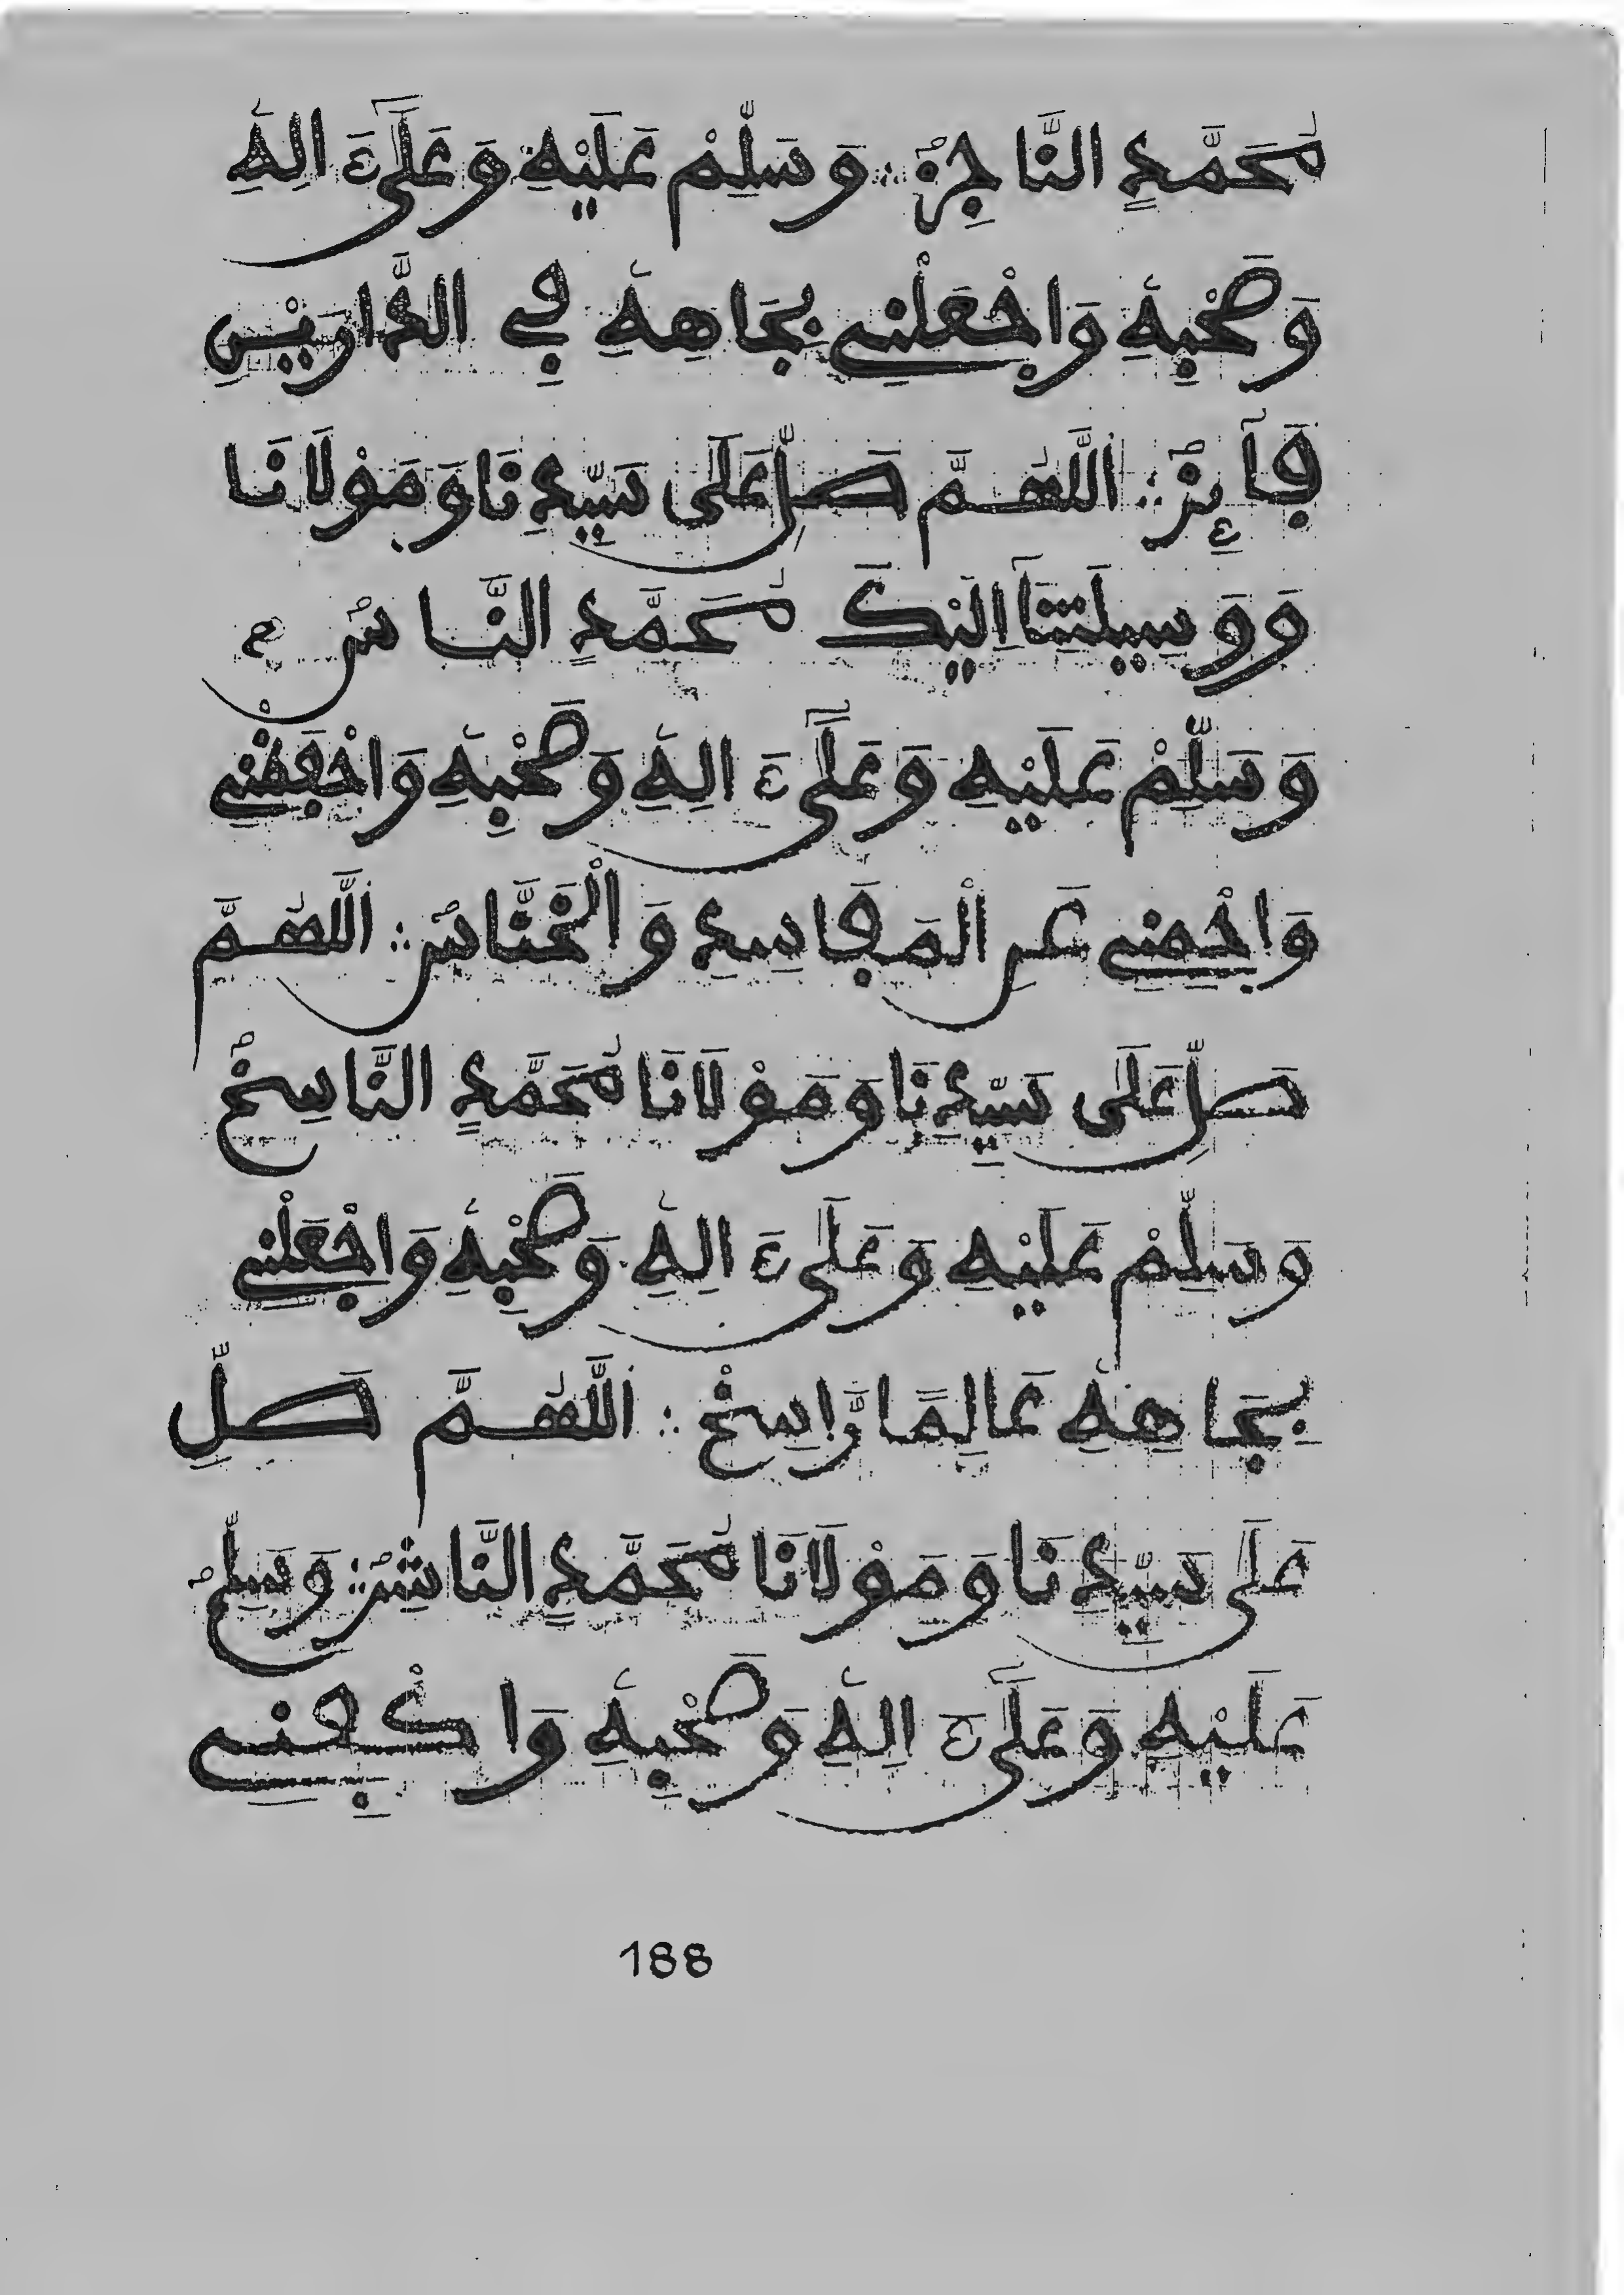 مُحَمَّدٍ النَّاجِزْ ؞ وَسَلِّمْ عَلَيْهِ وَعَلَىٰٓ ءَالِهِ
وَصَحْبِهِ وَاجْعَلْنِي بِجَاهِهِ فِي الدَّارَيْنِ
فَآئِزْ ؞ اَللَّهُمَّ صَلِّ عَلَى سَيِّدِنَا وَمَوْلَانَا
وَوَسِيلَتِنَآ إِلَيْكَ مُحَمَّدٍ النَّاسْ
وَسَلِّمْ عَلَيْهِ وَعَلَىٰٓ ءَالِهِ وَصَحْبِهِ وَاحْفَظْنِي
وَاحْمِنِي عَنِ الْمَفَاسِدِ وَالْخَنَّاسْ ؞ اَللَّهُمَّ
صَلِّ عَلَى سَيِّدِنَا وَمَوْلَانَا مُحَمَّدٍ النَّاسِخْ
وَسَلِّمْ عَلَيْهِ وَعَلَىٰ ءَالِهِ وَصَحْبِهِ وَاجْعَلْنِي
بِجَاهِهِ عَالِمًا رَّاسِخْ ؞ اَللَّهُمَّ صَلِّ
عَلَى سَيِّدِنَا وَمَوْلَانَا مُحَمَّدٍ النَّاشِرْ ؞ وَسَلِّمْ
عَلَيْهِ وَعَلَىٰٓ ءَالِهِ وَصَحْبِهِ وَاكْفِنِي
188